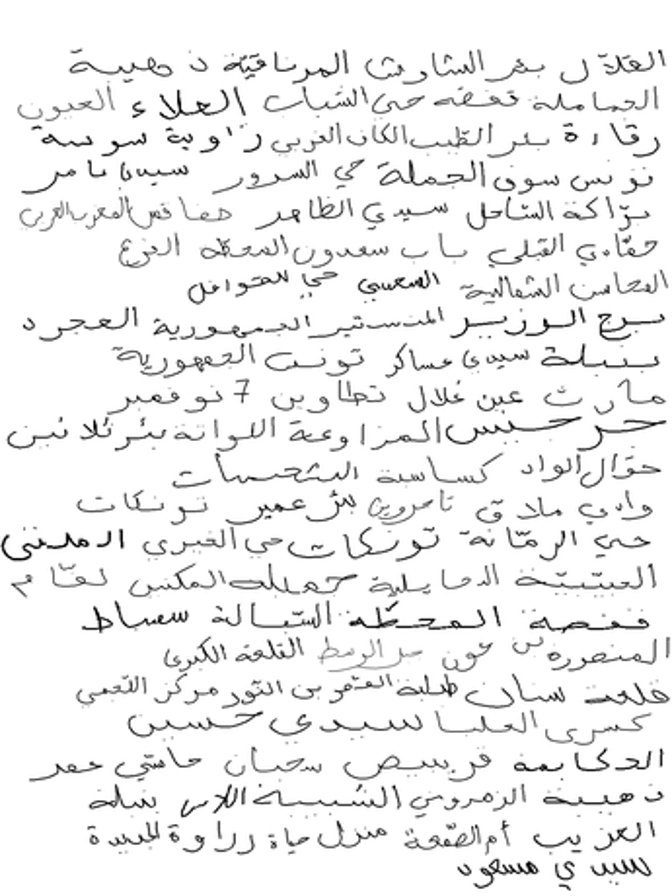 القلال بئر الشاوش المرناقية ذهيبة
الحماملة قفصة حي الشباب العلاء العيون
رقادة بئر الطيب الكاف الغربي زاوية سوسة
تونس سوق الجملة حي السرور سيدي عامر
برّاكة الساحل سيدي الظاهر صفاقس المغرب العربي
حفّاي القبلي باب سعدون المحطة الفرع
المحاسن الشمالية حي
برج الوزير المنستير الجمهورية العجرد
بنبلة سيدي عساكر تونس الجمهورية
مارث عين غلال تطاوين 7 نوفمبر
المزاوغة اللواتة بئر ثلاثين
حوّال الواد كساسبة
وادي ملاق تاجروين بئر عمير تونكات
حي الرمّانة تونكات حي الخيري
الحبيبية المكنين لقّام
قفصة المحطّة الشبالة سمساط
المنصورة عون القلعة الكبرى
قلعة سنان طبلبة القصر بن النور مركز اللجمي
كسرى العليا سيدي حسين
الحكايمة قربيص سحبان
ذهيبة الزمروني الشبيبة اللاس
العزيب أم الصّمعة منزل حياة زراوة الجديدة
سيدي مسعود